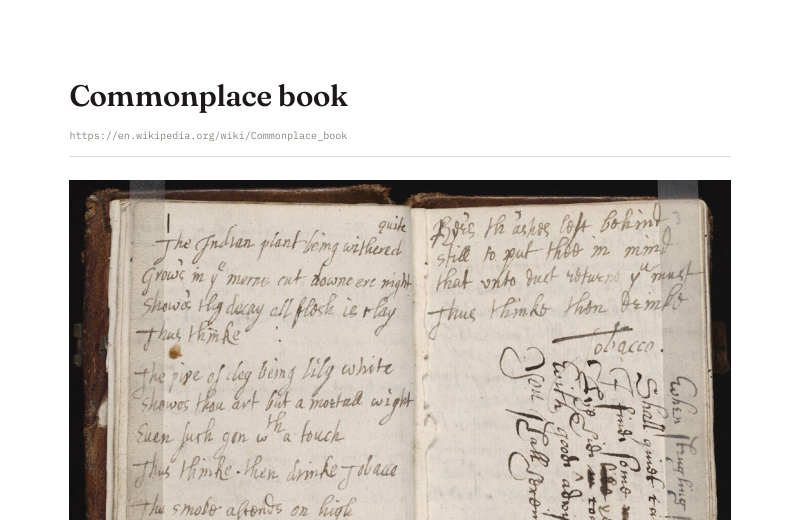 Commonplace book
https://en.wikipedia.org/wiki/Commonplace_book
quite
The Indian plant being withered
Grows in yᵉ morne cut downe ere night
Showes thy decay all flesh is clay
Thus thinke
The pipe of cley being lily white
Showes thou art but a mortall wight
Euen such gon wᵗʰ a touch
Thus thinke then drinke Tobaco
The smoke ascends on high
th ashes left behind
still to put thee in mind
that vnto dust returne yᵘ must
Thus thinke then drinke
Tobacco.
3
When
Shall
find some
with good